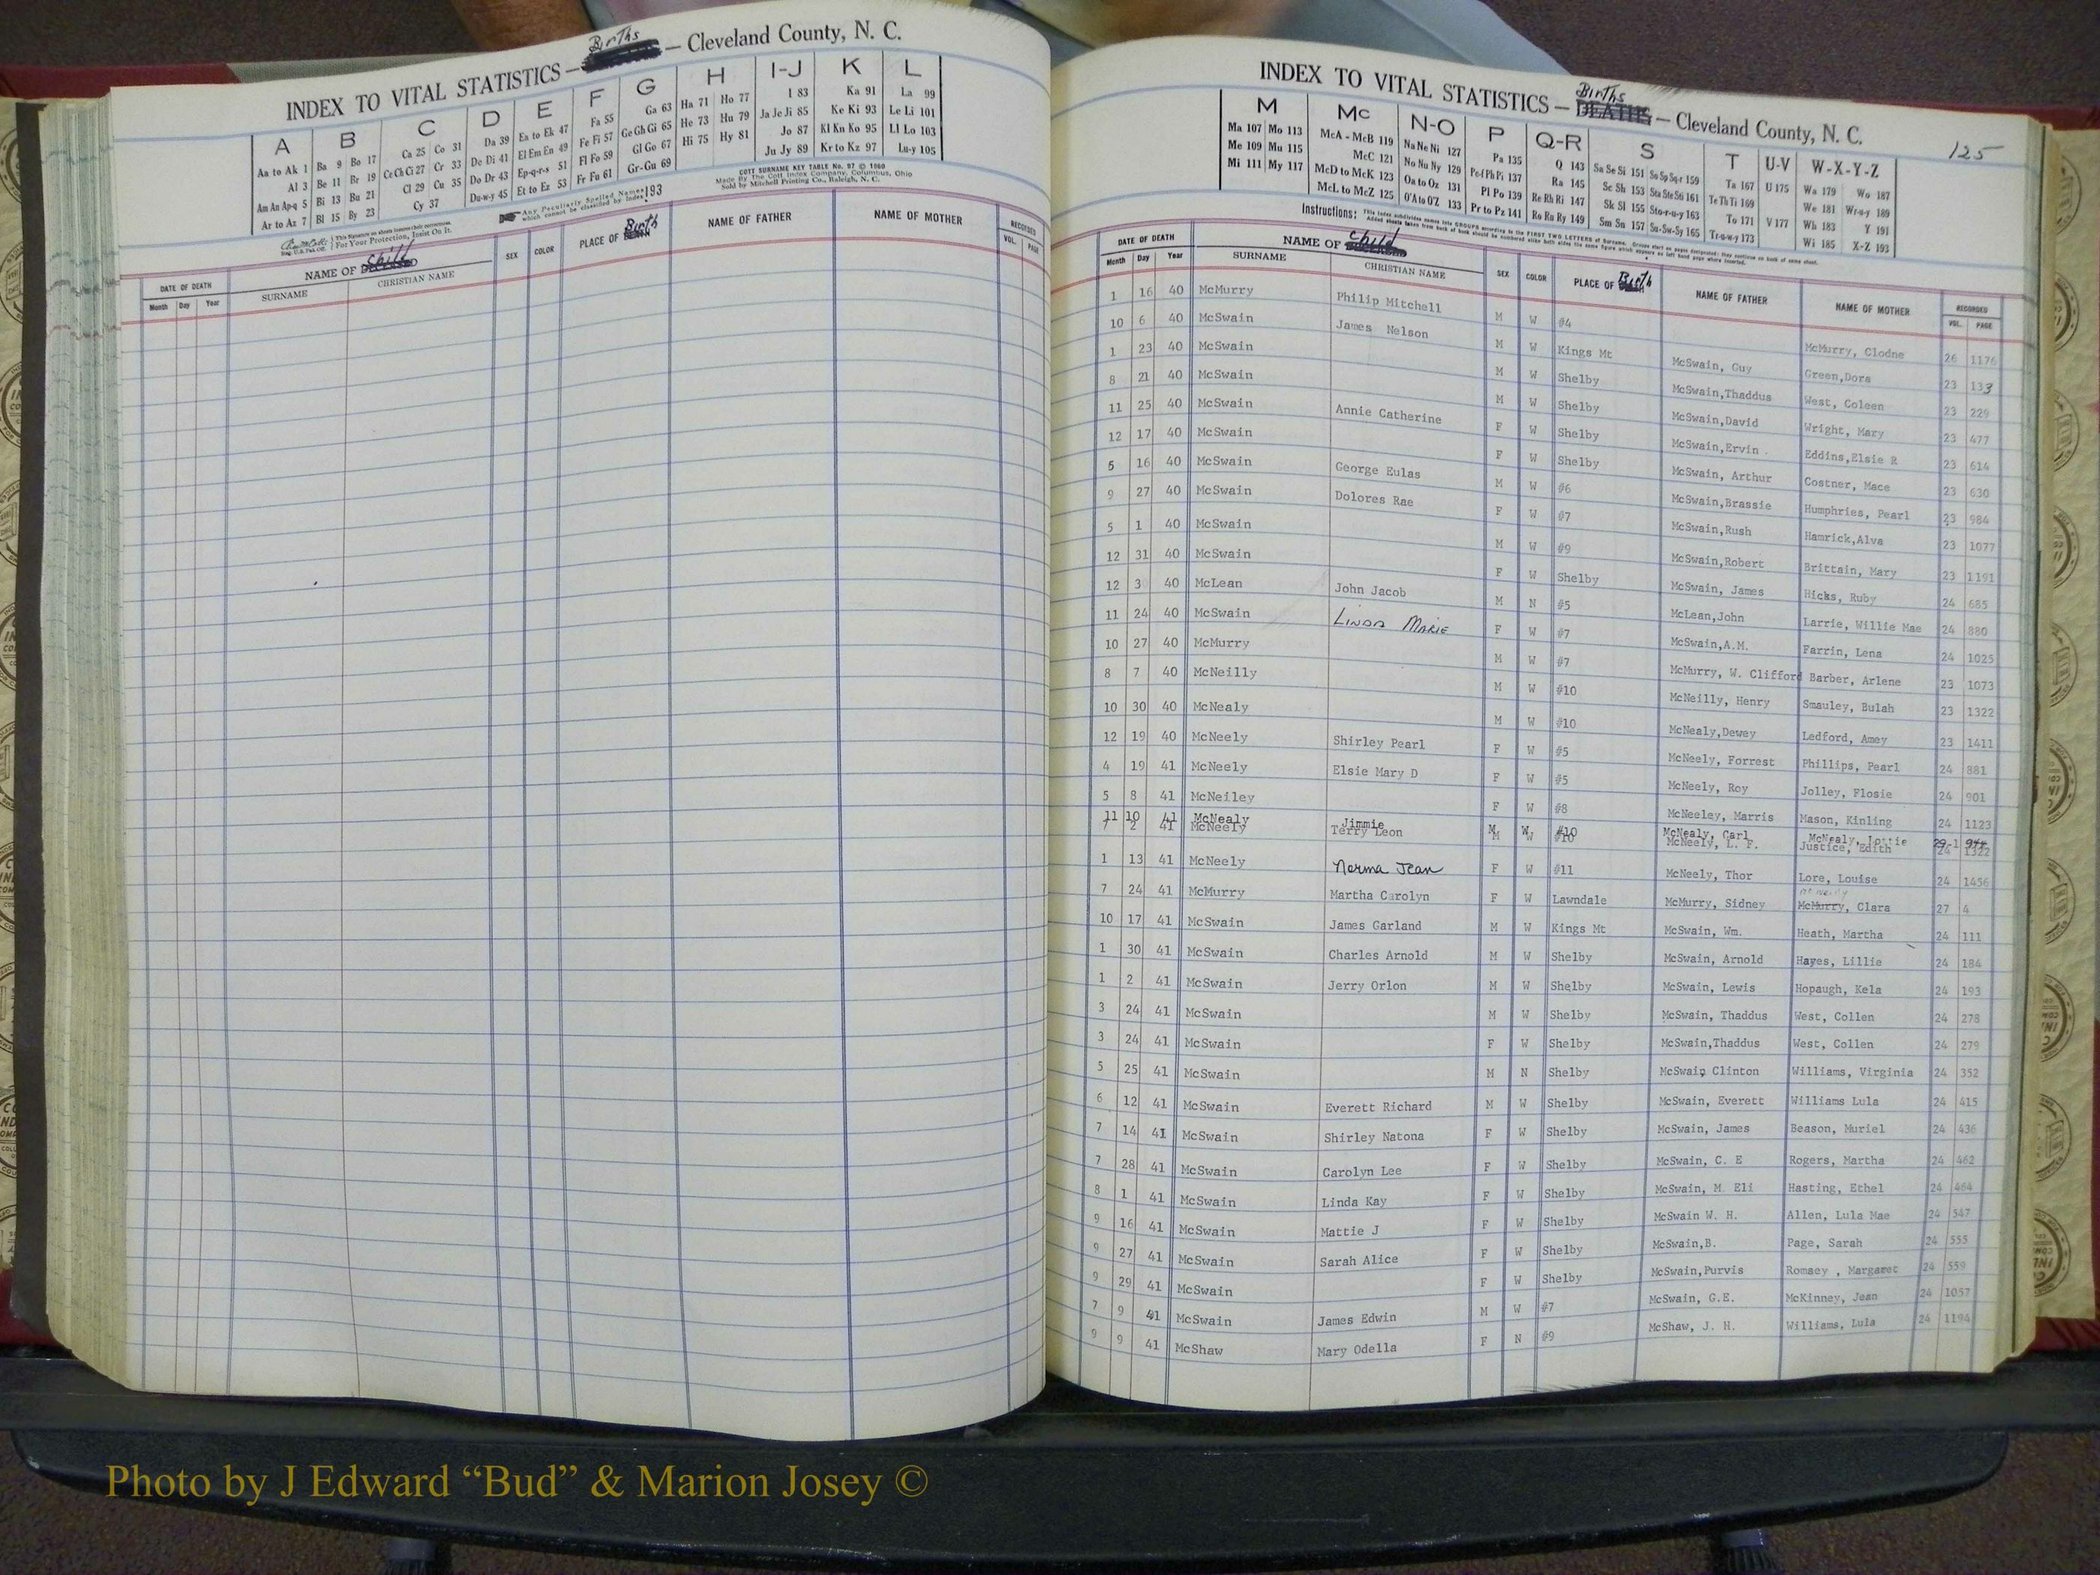 Births
INDEX TO VITAL STATISTICS — — Cleveland County, N. C.
A B C D E F G H I-J K L
Aa to Ak 1 Ba 9 Bo 17 Ca 25 Co 31 Da 39 Ea to Ek 47 Fa 55 Ga 63 Ha 71 Ho 77 I 83 Ka 91 La 99
Al 3 Be 11 Br 19 Ce Ch Ci 27 Cr 33 De Di 41 El Em En 49 Fe Fi 57 Ge Gh Gi 65 He 73 Hu 79 Ja Je Ji 85 Ke Ki 93 Le Li 101
Am An Ap-q 5 Bi 13 Bu 21 Cl 29 Cu 35 Do Dr 43 Ep-q-r-s 51 Fl Fo 59 Gl Go 67 Hi 75 Hy 81 Jo 87 Kl Kn Ko 95 Ll Lo 103
Ar to Az 7 Bl 15 By 23 Cy 37 Du-w-y 45 Et to Ez 53 Fr Fu 61 Gr-Gu 69 Ju Jy 89 Kr to Kz 97 Lu-y 105
Any Peculiarly Spelled Names which cannot be classified by Index 193
COTT SURNAME KEY TABLE No. 97 © 1960
Made By The Cott Index Company, Columbus, Ohio
Sold by Mitchell Printing Co., Raleigh, N. C.
This Signature on sheets insures their correctness.
For Your Protection, Insist On It.
DATE OF DEATH NAME OF DECEASED Child SEX COLOR PLACE OF DEATH Birth NAME OF FATHER NAME OF MOTHER RECORDED
Month Day Year SURNAME CHRISTIAN NAME VOL. PAGE
Births
INDEX TO VITAL STATISTICS — DEATHS — Cleveland County, N. C.
125
M Mc N-O P Q-R S T U-V W-X-Y-Z
Ma 107 Mo 113 McA - McB 119 Na Ne Ni 127 Pa 135 Q 143 Sa Se Si 151 So Sp Sq-r 159 Ta 167 U 175 Wa 179 Wo 187
Me 109 Mu 115 McC 121 No Nu Ny 129 Pe-f Ph Pi 137 Ra 145 Sc Sh 153 Sta Ste Sti 161 Te Th Ti 169 We 181 Wr-u-y 189
Mi 111 My 117 McD to McK 123 Oa to Oz 131 Pl Po 139 Re Rh Ri 147 Sk Sl 155 Sto-r-u-y 163 To 171 V 177 Wh 183 Y 191
McL to McZ 125 O'A to O'Z 133 Pr to Pz 141 Ro Ru Ry 149 Sm Sn 157 Su-Sw-Sy 165 Tr-u-w-y 173 Wi 185 X-Z 193
Instructions: This index subdivides names into GROUPS according to the FIRST TWO LETTERS of Surname.
DATE OF DEATH NAME OF Child SEX COLOR PLACE OF Birth NAME OF FATHER NAME OF MOTHER RECORDED
Month Day Year SURNAME CHRISTIAN NAME VOL. PAGE
1 16 40 McMurry Philip Mitchell M W #4 McMurry, Clodne 26 1176
10 6 40 McSwain James Nelson M W Kings Mt McSwain, Guy Green,Dora 23 133
1 23 40 McSwain M W Shelby McSwain,Thaddus West, Coleen 23 229
8 21 40 McSwain M W Shelby McSwain,David Wright, Mary 23 477
11 25 40 McSwain Annie Catherine F W Shelby McSwain,Ervin . Eddins,Elsie R 23 614
12 17 40 McSwain F W Shelby McSwain, Arthur Costner, Mace 23 630
5 16 40 McSwain George Eulas M W #6 McSwain,Brassie Humphries, Pearl 23 984
9 27 40 McSwain Dolores Rae F W #7 McSwain,Rush Hamrick,Alva 23 1077
5 1 40 McSwain M W #9 McSwain,Robert Brittain, Mary 23 1191
12 31 40 McSwain F W Shelby McSwain, James Hicks, Ruby 24 685
12 3 40 McLean John Jacob M N #5 McLean,John Larrie, Willie Mae 24 880
11 24 40 McSwain Linda Marie F W #7 McSwain,A.M. Farrin, Lena 24 1025
10 27 40 McMurry M W #7 McMurry, W. Clifford Barber, Arlene 23 1073
8 7 40 McNeilly M W #10 McNeilly, Henry Smauley, Bulah 23 1322
10 30 40 McNealy M W #10 McNealy,Dewey Ledford, Amey 23 1411
12 19 40 McNeely Shirley Pearl F W #5 McNeely, Forrest Phillips, Pearl 24 881
4 19 41 McNeely Elsie Mary D F W #5 McNeely, Roy Jolley, Flosie 24 901
5 8 41 McNeiley F W #8 McNeeley, Marris Mason, Kinling 24 1123
11 10 41 McNealy Jimmie M W #10 McNealy, Carl McNealy, Lottie 29-1 944
7 2 41 McNeely Terry Leon M W #10 McNeely, L. F. Justice, Edith 24 1322
1 13 41 McNeely Norma Jean F W #11 McNeely, Thor Lore, Louise 24 1456
7 24 41 McMurry Martha Carolyn F W Lawndale McMurry, Sidney McMurry, Clara 27 4
10 17 41 McSwain James Garland M W Kings Mt McSwain, Wm. Heath, Martha 24 111
1 30 41 McSwain Charles Arnold M W Shelby McSwain, Arnold Hayes, Lillie 24 184
1 2 41 McSwain Jerry Orlon M W Shelby McSwain, Lewis Hopaugh, Kela 24 193
3 24 41 McSwain M W Shelby McSwain, Thaddus West, Collen 24 278
3 24 41 McSwain F W Shelby McSwain,Thaddus West, Collen 24 279
5 25 41 McSwain M N Shelby McSwain, Clinton Williams, Virginia 24 352
6 12 41 McSwain Everett Richard M W Shelby McSwain, Everett Williams Lula 24 415
7 14 41 McSwain Shirley Natona F W Shelby McSwain, James Beason, Muriel 24 436
7 28 41 McSwain Carolyn Lee F W Shelby McSwain, C. E Rogers, Martha 24 462
8 1 41 McSwain Linda Kay F W Shelby McSwain, M. Eli Hasting, Ethel 24 464
9 16 41 McSwain Mattie J F W Shelby McSwain W. H. Allen, Lula Mae 24 547
9 27 41 McSwain Sarah Alice F W Shelby McSwain,B. Page, Sarah 24 555
9 29 41 McSwain F W Shelby McSwain,Purvis Romsey , Margaret 24 559
7 9 41 McSwain James Edwin M W #7 McSwain, G.E. McKinney, Jean 24 1057
9 9 41 McShaw Mary Odella F N #9 McShaw, J. H. Williams, Lula 24 1194
Photo by J Edward “Bud” & Marion Josey ©